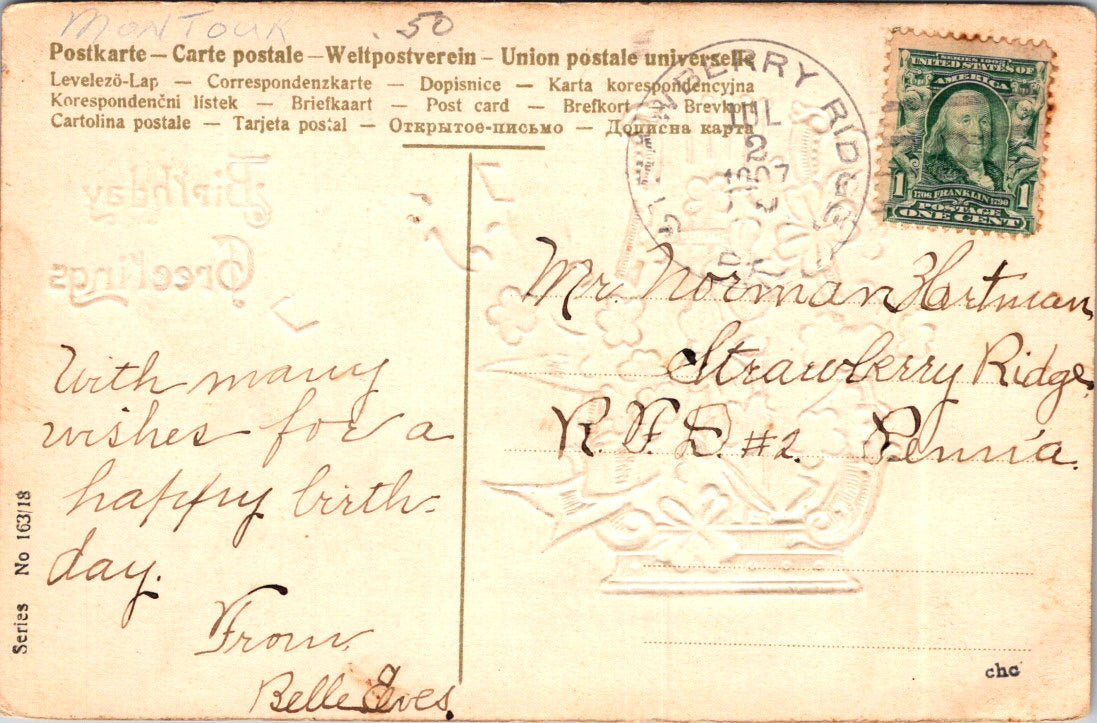 MONTOUR .50
Postkarte — Carte postale — Weltpostverein — Union postale universelle
Levelezö-Lap — Correspondenzkarte — Dopisnice — Karta korespondencyjna
Korespondenčni lístek — Briefkaart — Post card — Brefkort — Brevkort
Cartolina postale — Tarjeta postal — Открытое-письмо — Дописна карта
STRAWBERRY RIDGE
JUL
2
1907
PA.
SERIES 1902
UNITED STATES OF
AMERICA
1706 FRANKLIN 1790
POSTAGE
1 ONE CENT 1
Birthday
Greetings
Mr. Norman Hartman,
Strawberry Ridge,
R. F. D. #2. Penn'a.
With many
wishes for a
happy birth-
day.
From
Belle
Series No 163/18
chc